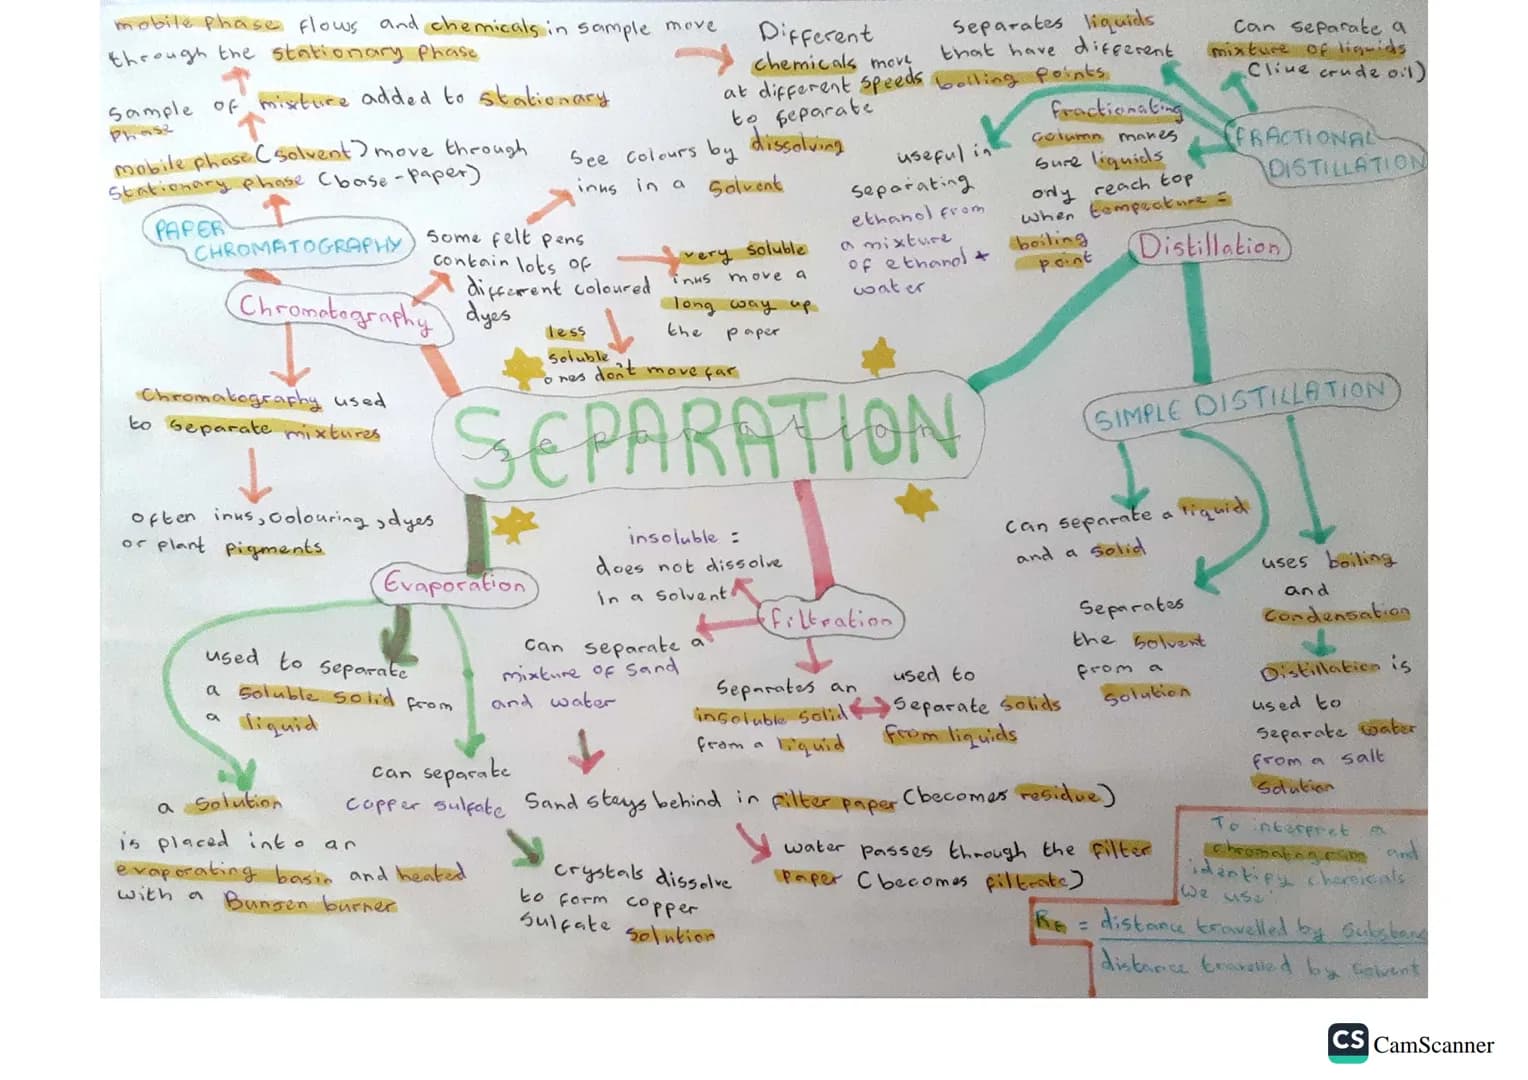 mobile phase flows and chemicals in sample move
through the stationary phase
Sample of mixture added to stationary
phase
mobile phase (solvent) move through
stationary phase (base-paper)
PAPER
CHROMATOGRAPHY
Chromatography
Different
chemicals move
at different speeds
to separate
See colours by dissolving
inks in a solvent
Some felt pens
contain lots of
different coloured
dyes
very soluble
inks move a
long way up
the paper
less
soluble
ones don't move far
Chromatography used
to separate mixtures
often inks, colouring, dyes
or plant pigments
separates liquids
that have different
boiling points
can separate a
mixture of liquids
(like crude oil)
FRACTIONAL
DISTILLATION
fractionating
column makes
sure liquids
only reach top
when temperature =
boiling
point
useful in
separating
ethanol from
a mixture
of ethanol +
water
Distillation
SEPARATION
separation
SIMPLE DISTILLATION
can separate a liquid
and a solid
Separates
the solvent
from a
solution
uses boiling
and
condensation
Distillation is
used to
separate water
from a salt
solution
Evaporation
used to separate
a soluble solid from
a liquid
a solution
is placed into an
evaporating basin and heated
with a Bunsen burner
can separate
copper sulfate
crystals dissolve
to form copper
sulfate solution
insoluble =
does not dissolve
in a solvent
filtration
can separate a
mixture of sand
and water
Separates an
insoluble solid
from a liquid
used to
separate solids
from liquids
Sand stays behind in filter paper (becomes residue)
water passes through the filter
paper (becomes filtrate)
To interpret a
chromatogram and
identify chemicals
we use:
Rf = distance travelled by substanc
distance travelled by solvent
CS CamScanner